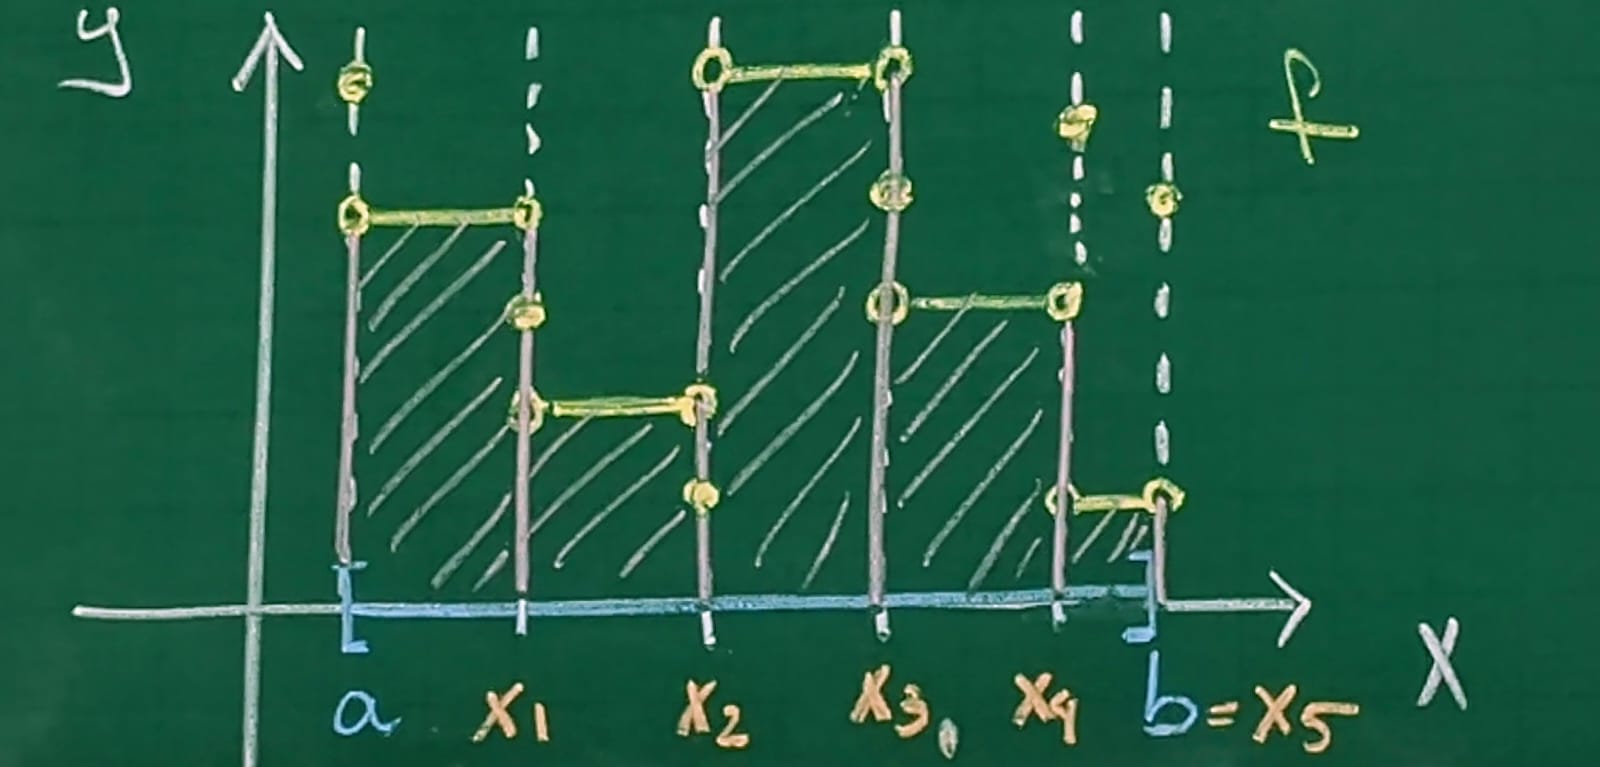 y
f
a x1 x2 x3 x4 b = x5
x